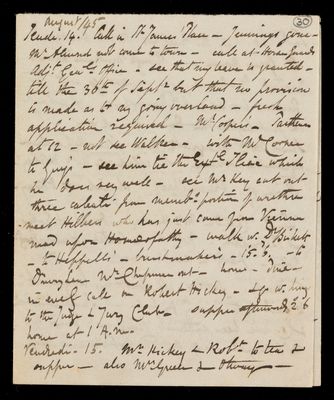 August / 45
30
Jeudi. 14. call in St James Place — Jennings gone —
Mr Ahmed not come to town — call at Horse Guards
Adjt. Genl's Office — see that my leave is granted —
till the 30th of Septr but that no provision
is made as to my going overland — fresh
application required — Mr
at 12 — not see Walker — with Mr Cooper
to Guy's — see him tie the Extl Iliac which
he does very well — see Mr Key cut out
three calculi from membs portion of urethra
meet Hilbers who has just come from Vienna
mad upon Homœopathy — walk w. Dr
to — 15.
Mr Chapman out — home — dine —
in eveng call on Robert Hickey — & go w. him
to the Judge & Jury Club — supper afterwards 2.6
home at 1 A.M. —
Vendredi — 15. Mrs Hickey & Robt to tea &
supper — also Mrs Green &